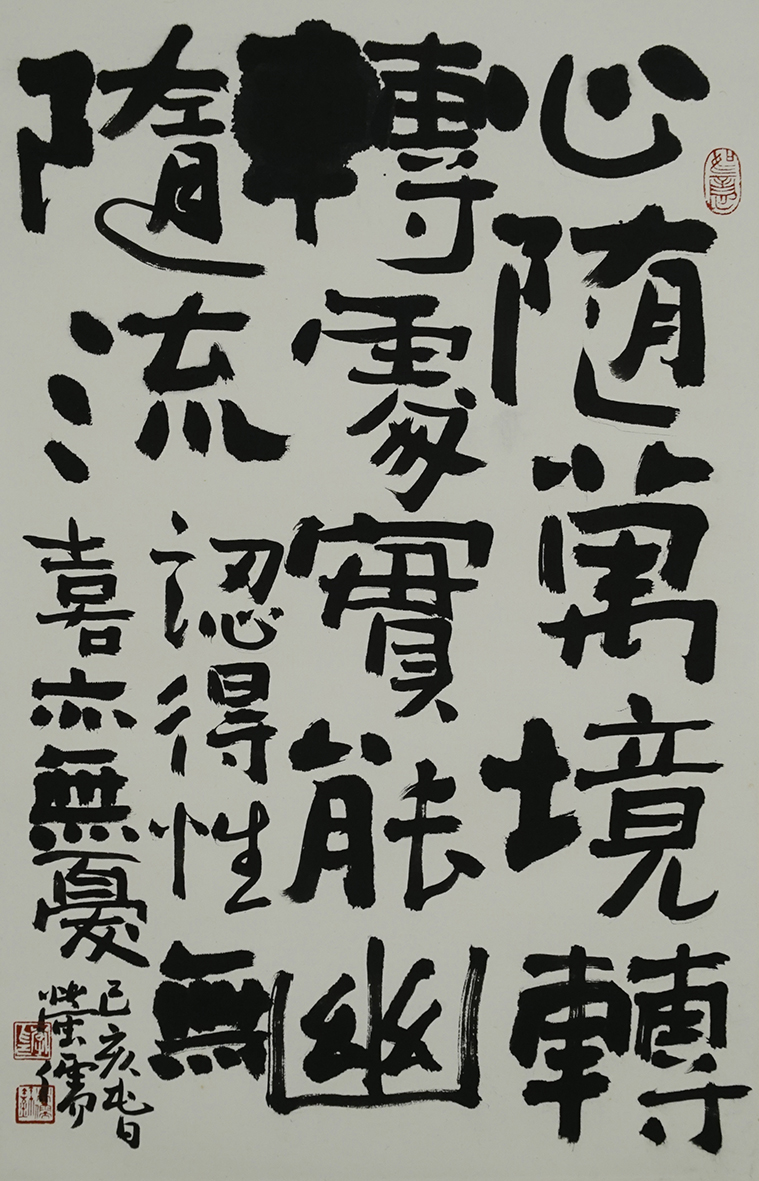 如意
心随萬境轉
轉處實能幽
隨流認得性無
喜亦無憂
己亥春日